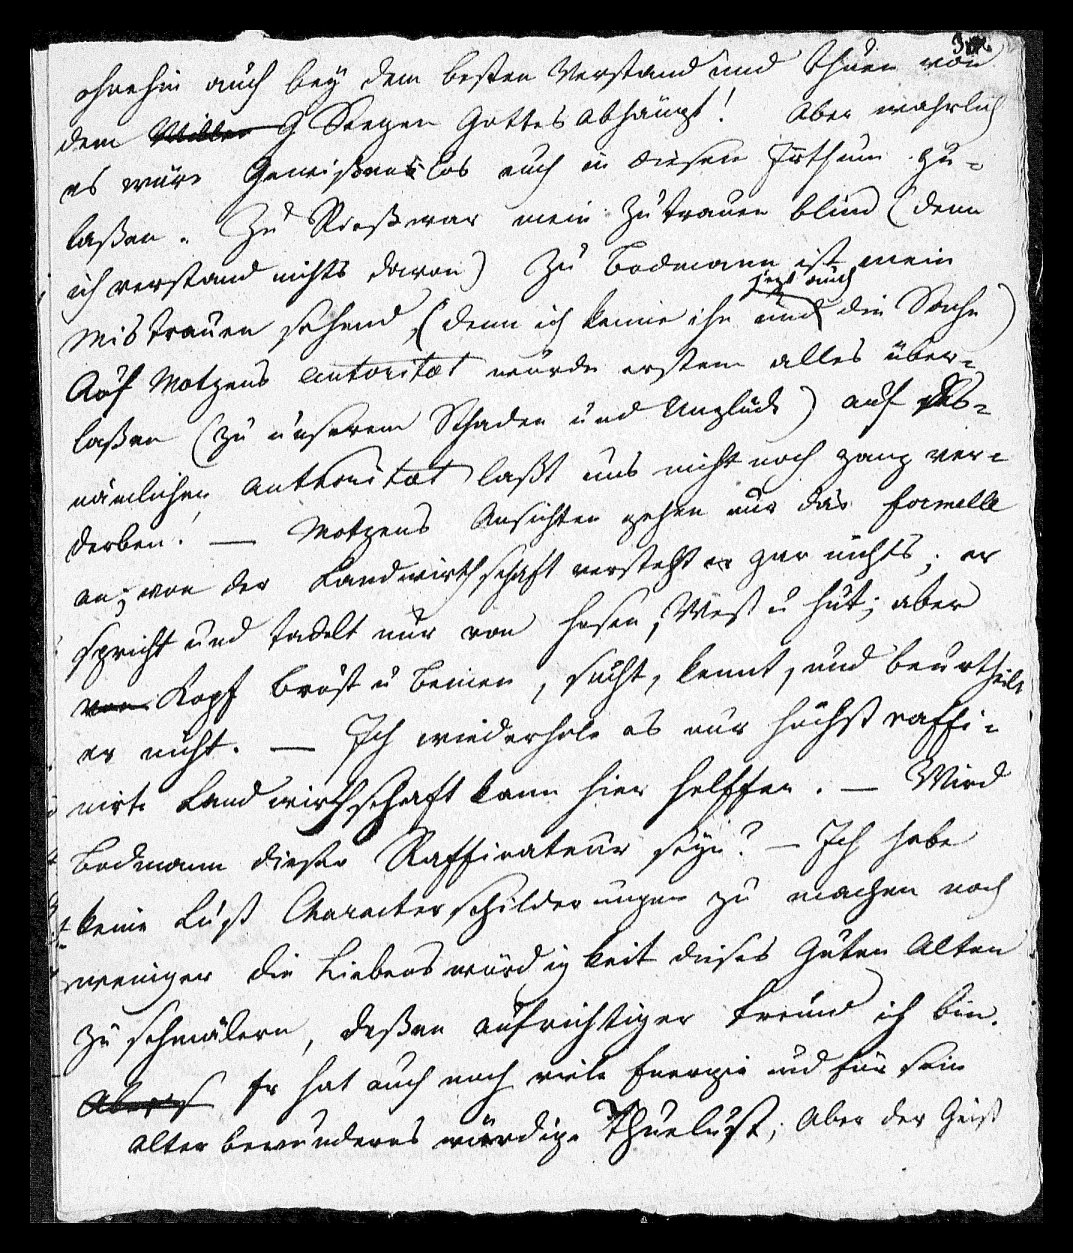 ohnehin auch bey dem besten Verstand und Thuen von
dem G Seegen Gottes abhängt! Aber wahrlich
es wäre Gewißenslos auch in diesen Irthum zu-
laßen. Zu Rieß war mein Zutrauen blind (denn
ich verstand nichts davon) Zu Bodmann ist mein
jezt auch
Mistrauen sehend, (denn ich kenne ihn und die Sache)
Auf Motzens autoritæt wurde erstem alles über-
laßen (zu unserem Schaden und Unglück) auf des-
nämlichen Authoritæt laßt uns nicht noch ganz ver-
derben! — Motzens Ansichten gehen nur das formelle
an; von der Landwirthschaft versteht er gar nichts; er
spricht und tadelt nur von Hosen, West u Hut; aber
von Kopf Brust u Beinen, sucht, kennt, und beurtheilt
er nicht. — Ich wiederhole es nur höchst raffi-
nirte Landwirthschaft kann hier helffen. — Wird
Bodmann dieser Raffinateur seyn? — Ich habe
keine Lust Characterschilderungen zu machen noch
weniger die Liebenswürdigkeit dieses Guten Alten
zu schmälern, deßen aufrichtiger Freund ich bin.
Er hat auch noch viele Energie und für sein
alter bewunderns würdige Thuelust; Aber der Geist